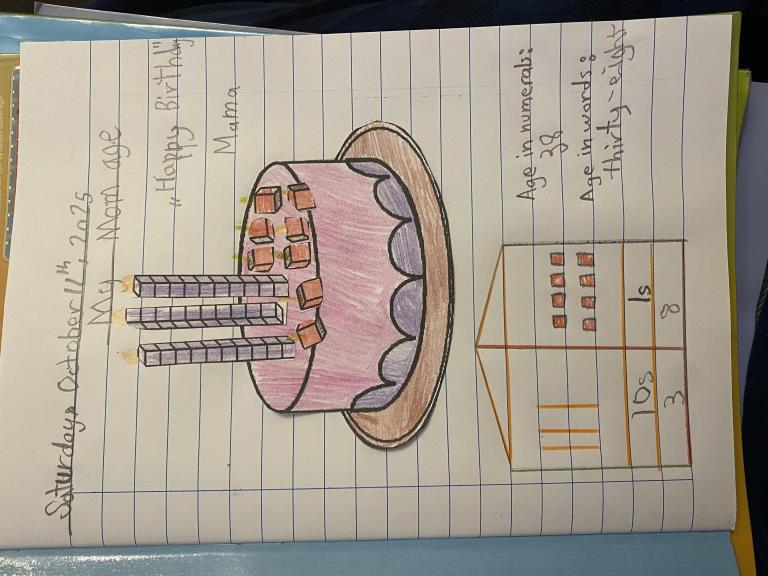 Saturday, October 11th, 2025
My Mom age
"Happy Birthday"
Mama
Age in numerals:
38
Age in words:
thirty-eight
10s 1s
3 8